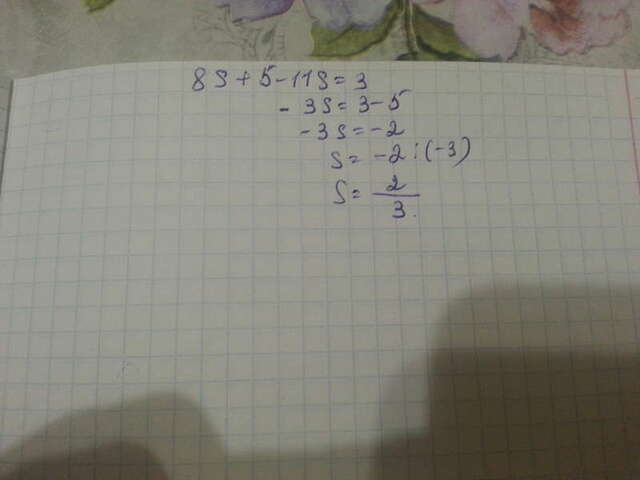 8s + 5 - 11s = 3
- 3s = 3 - 5
- 3s = - 2
s = - 2 : (-3)
s = 2/3